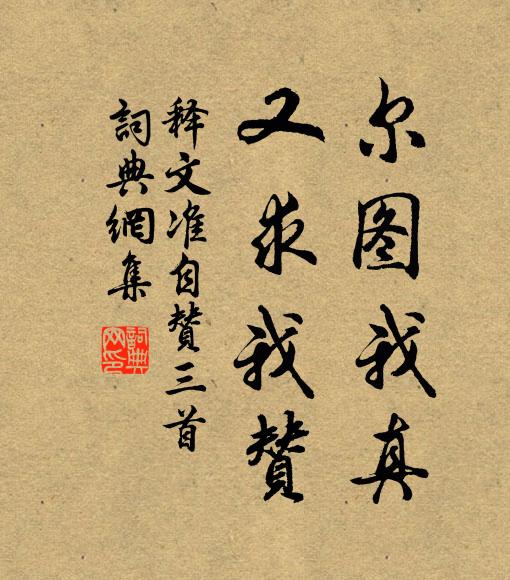 尔图我真
又求我赞
释文准自赞三首
詞典網集
詞典网印